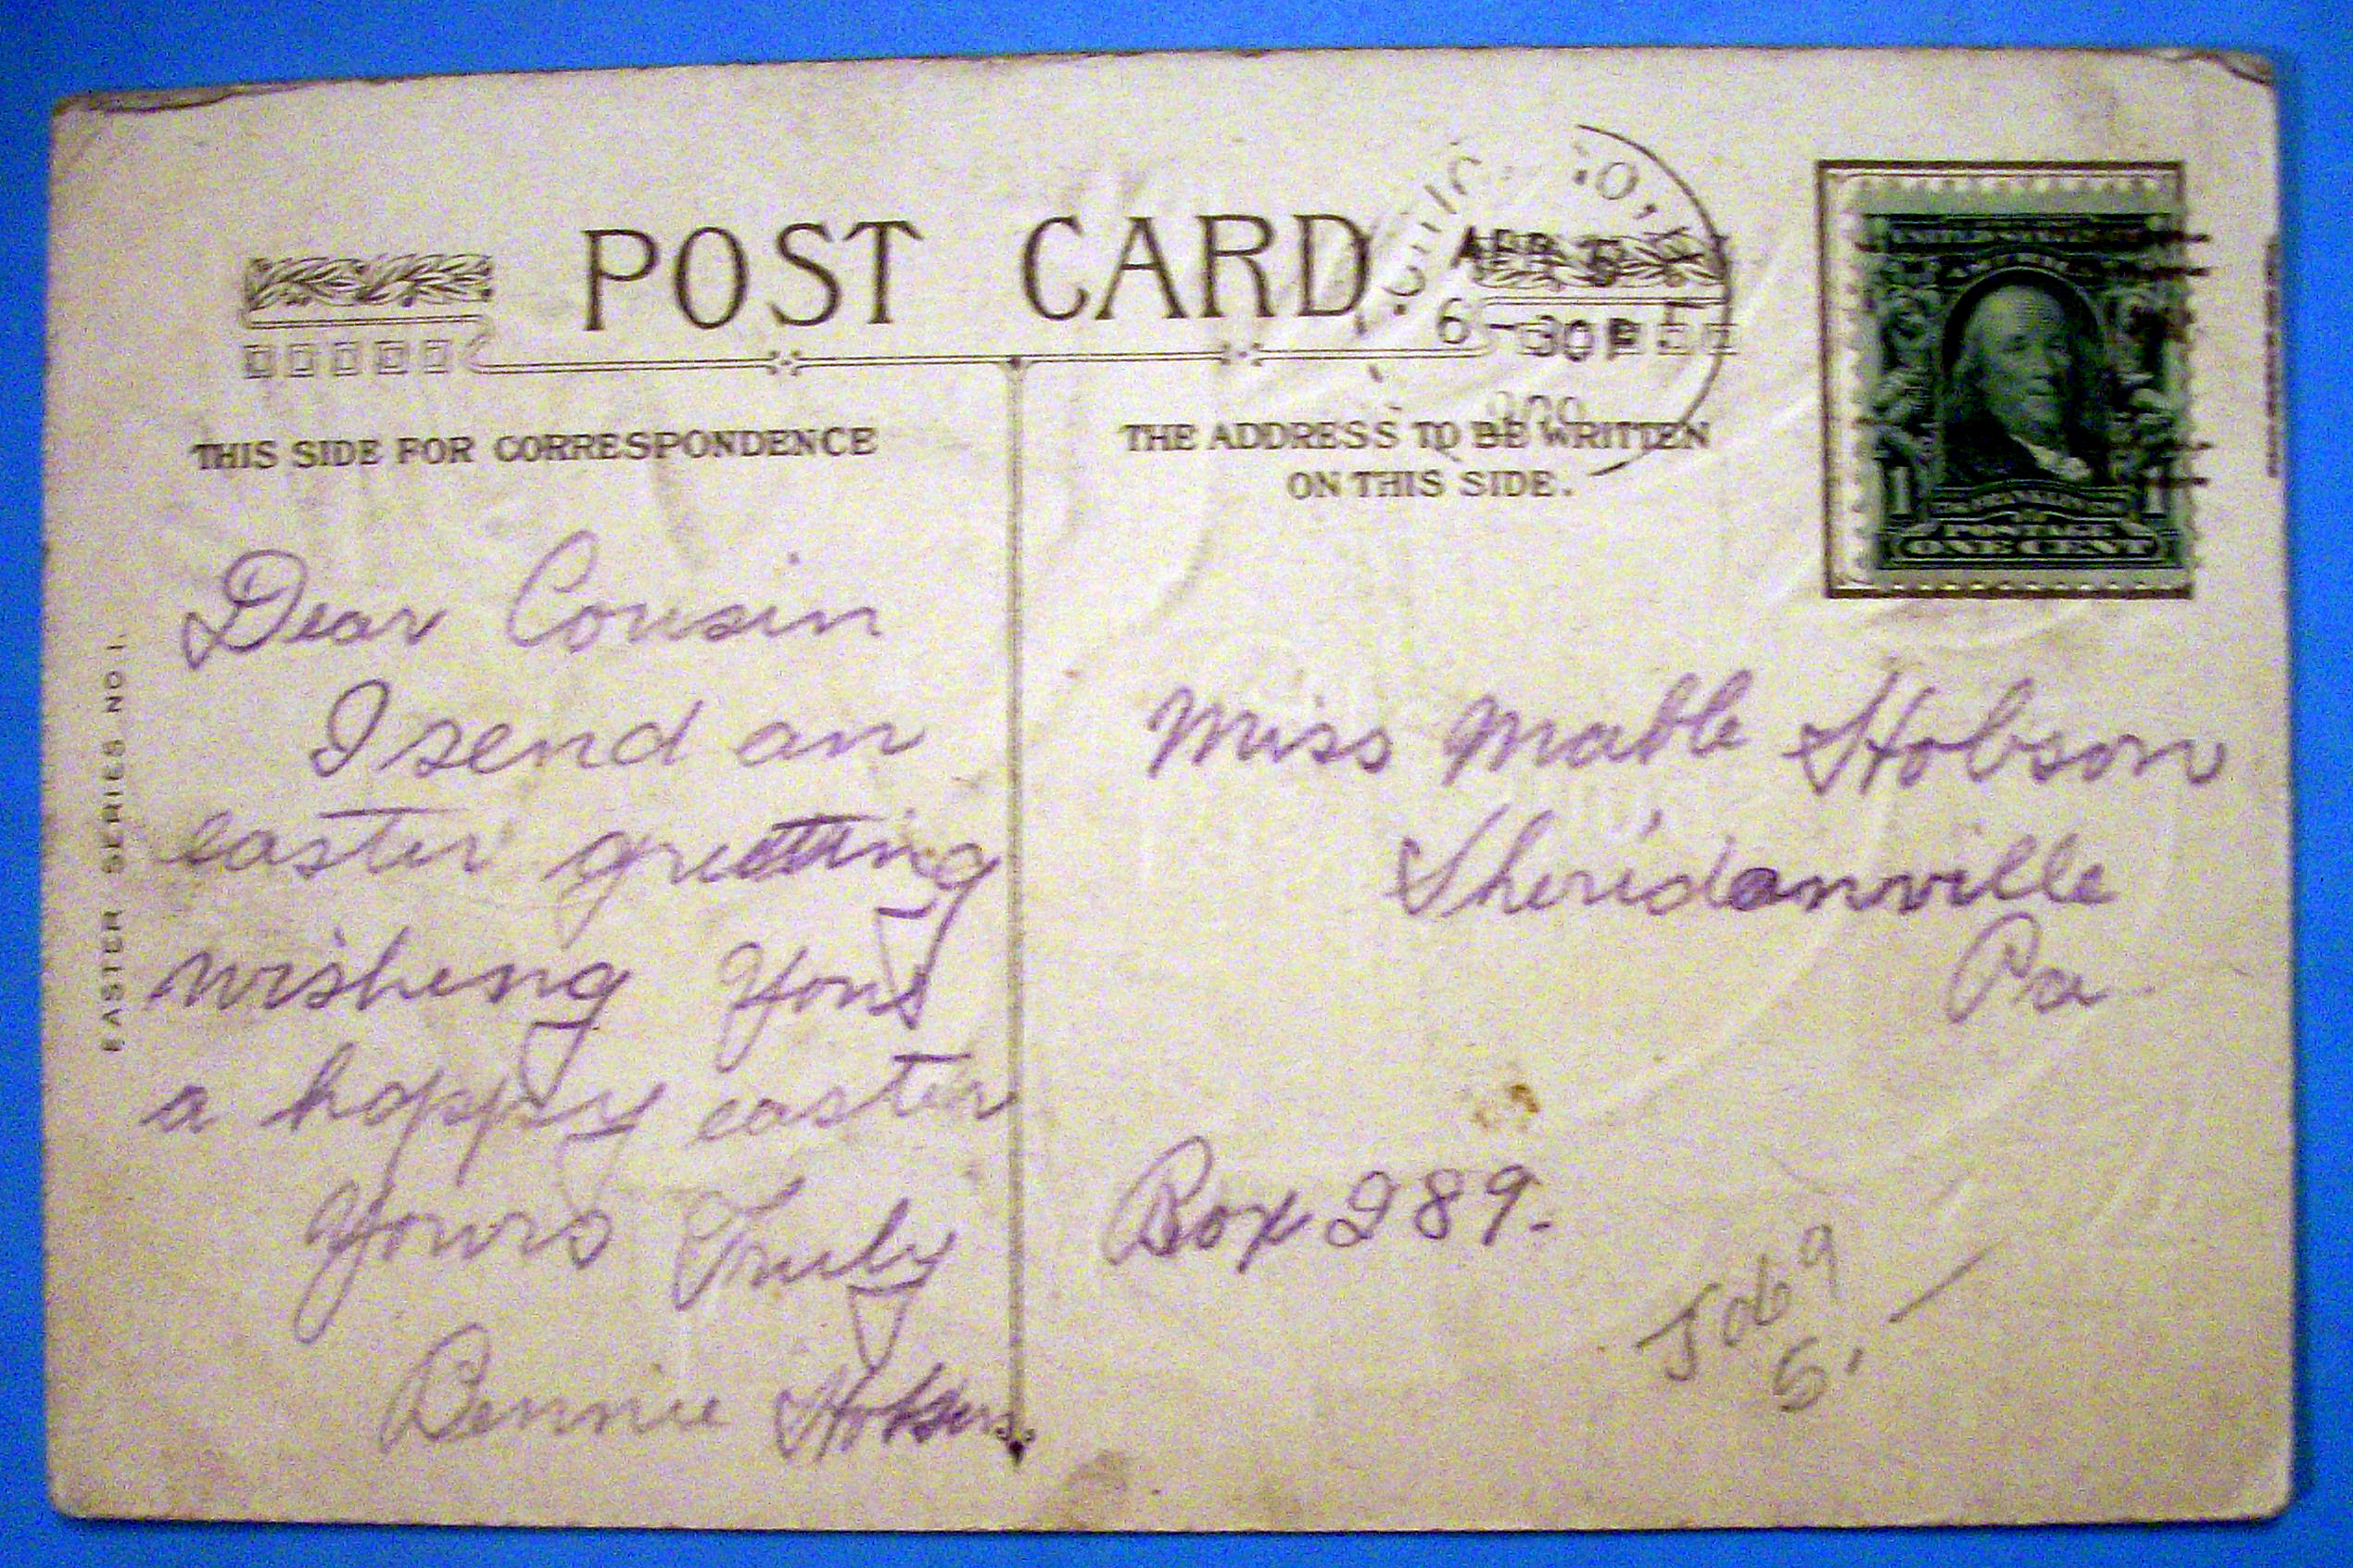 POST CARD
APR 5
6-30 P
THIS SIDE FOR CORRESPONDENCE
THE ADDRESS TO BE WRITTEN
ON THIS SIDE.
1 1
FRANKLIN
POSTAGE
ONE CENT
Dear Cousin
I send an
easter greetting
wisheng you
a happy easter
yours Truly
Bennie Hobson
Miss Mable Hobson
Sheridanville
Pa
Box 289.
5069
5.
EASTER SERIES NO 1.